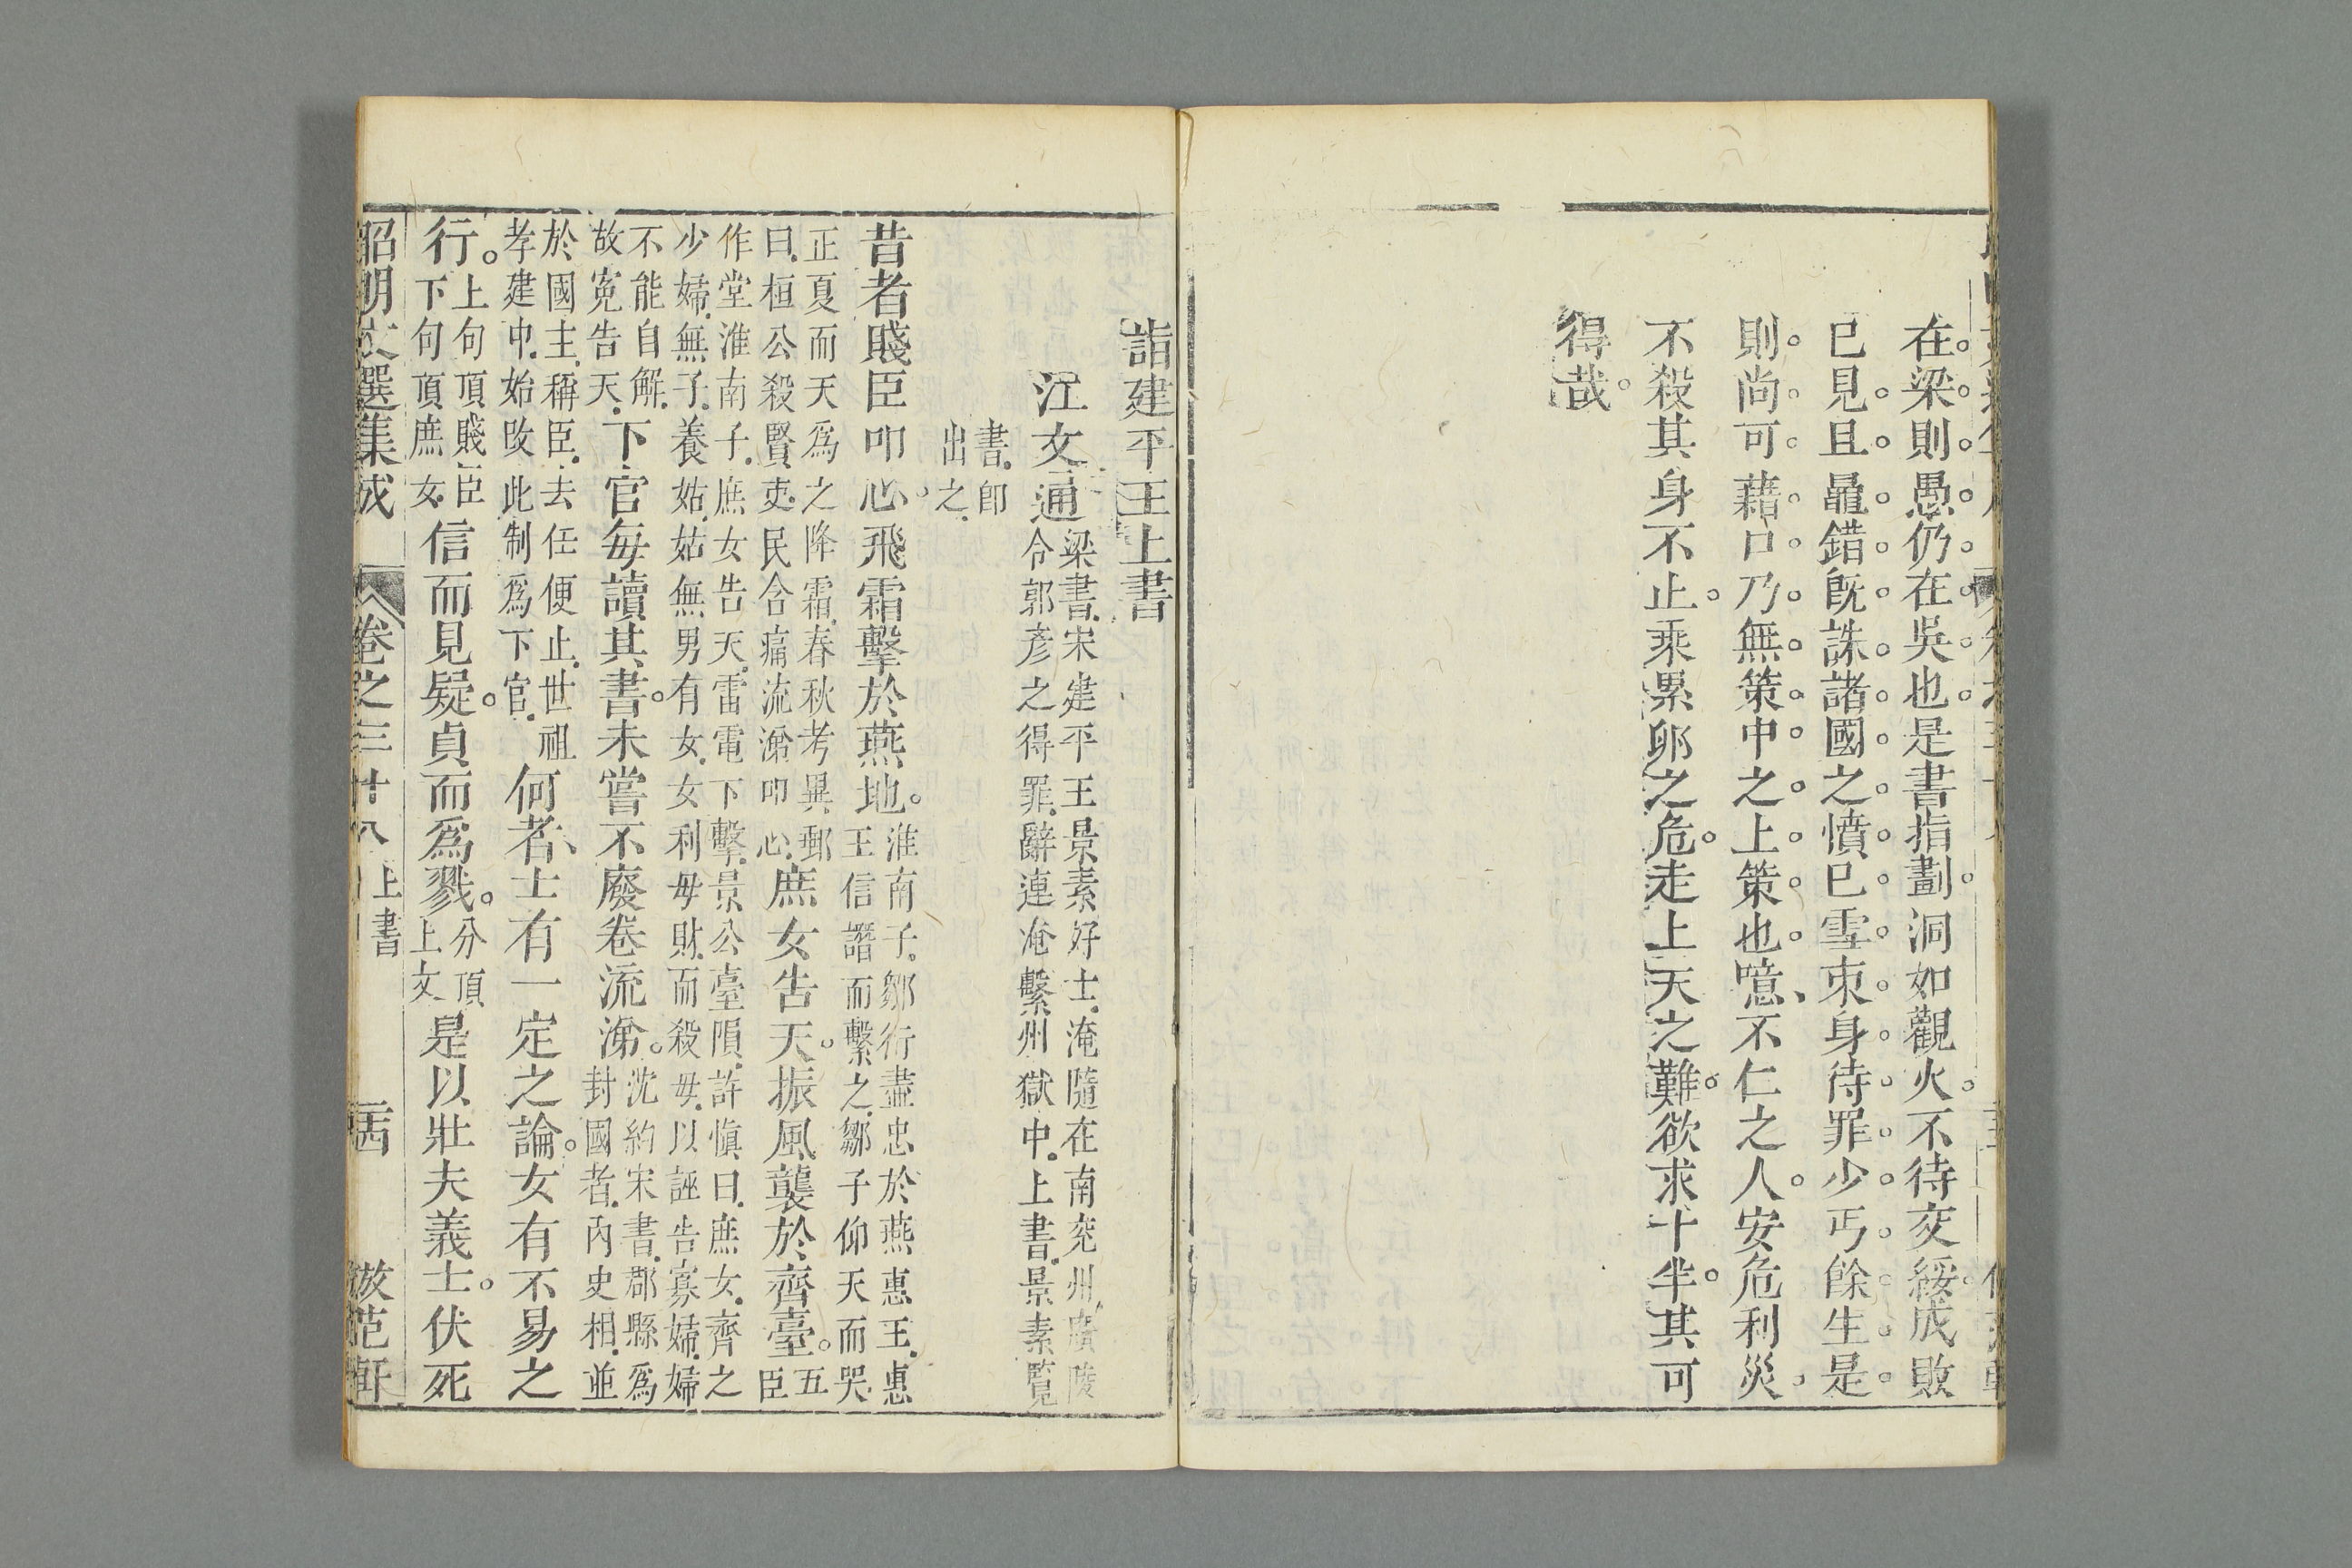 在梁則愚仍在吳也是書指劃洞如觀火不待交綏成敗
已見且鼂錯旣誅諸國之憤已雪束身待罪少丐餘生是
則尚可藉口乃無策中之上策也噫不仁之人安危利災
不殺其身不止乘累卵之危走上天之難欲求十半其可
得哉
詣建平王上書
江文通
梁書宋建平王景素好士淹隨在南兖州廣陵
令郭彥之得罪辭連淹繫州獄中上書景素覽
書卽
出之
昔者賤臣叩心飛霜擊於燕地
淮南子鄒衍盡忠於燕惠王惠
王信譖而繫之鄒子仰天而哭
正夏而天爲之降霜春秋考異郵
曰桓公殺賢吏民含痛流涕叩心
庶女告天振風襲於齊臺
五
臣
作堂淮南子庶女告天雷電下擊景公臺隕許愼曰庶女齊之
少婦無子養姑姑無男有女女利毋財而殺毋以誣告寡婦婦
不能自解
故寃告天
下官每讀其書未嘗不廢卷流涕
沈約宋書郡縣爲
封國者內史相並
於國主稱臣去任便止世祖
孝建中始改此制爲下官
何者士有一定之論女有不易之
行
上句頂賤臣
下句頂庶女
信而見疑貞而爲戮
分頂
上文
是以壯夫義士伏死
昭明文選集成 卷之三十八 上書 倣范軒